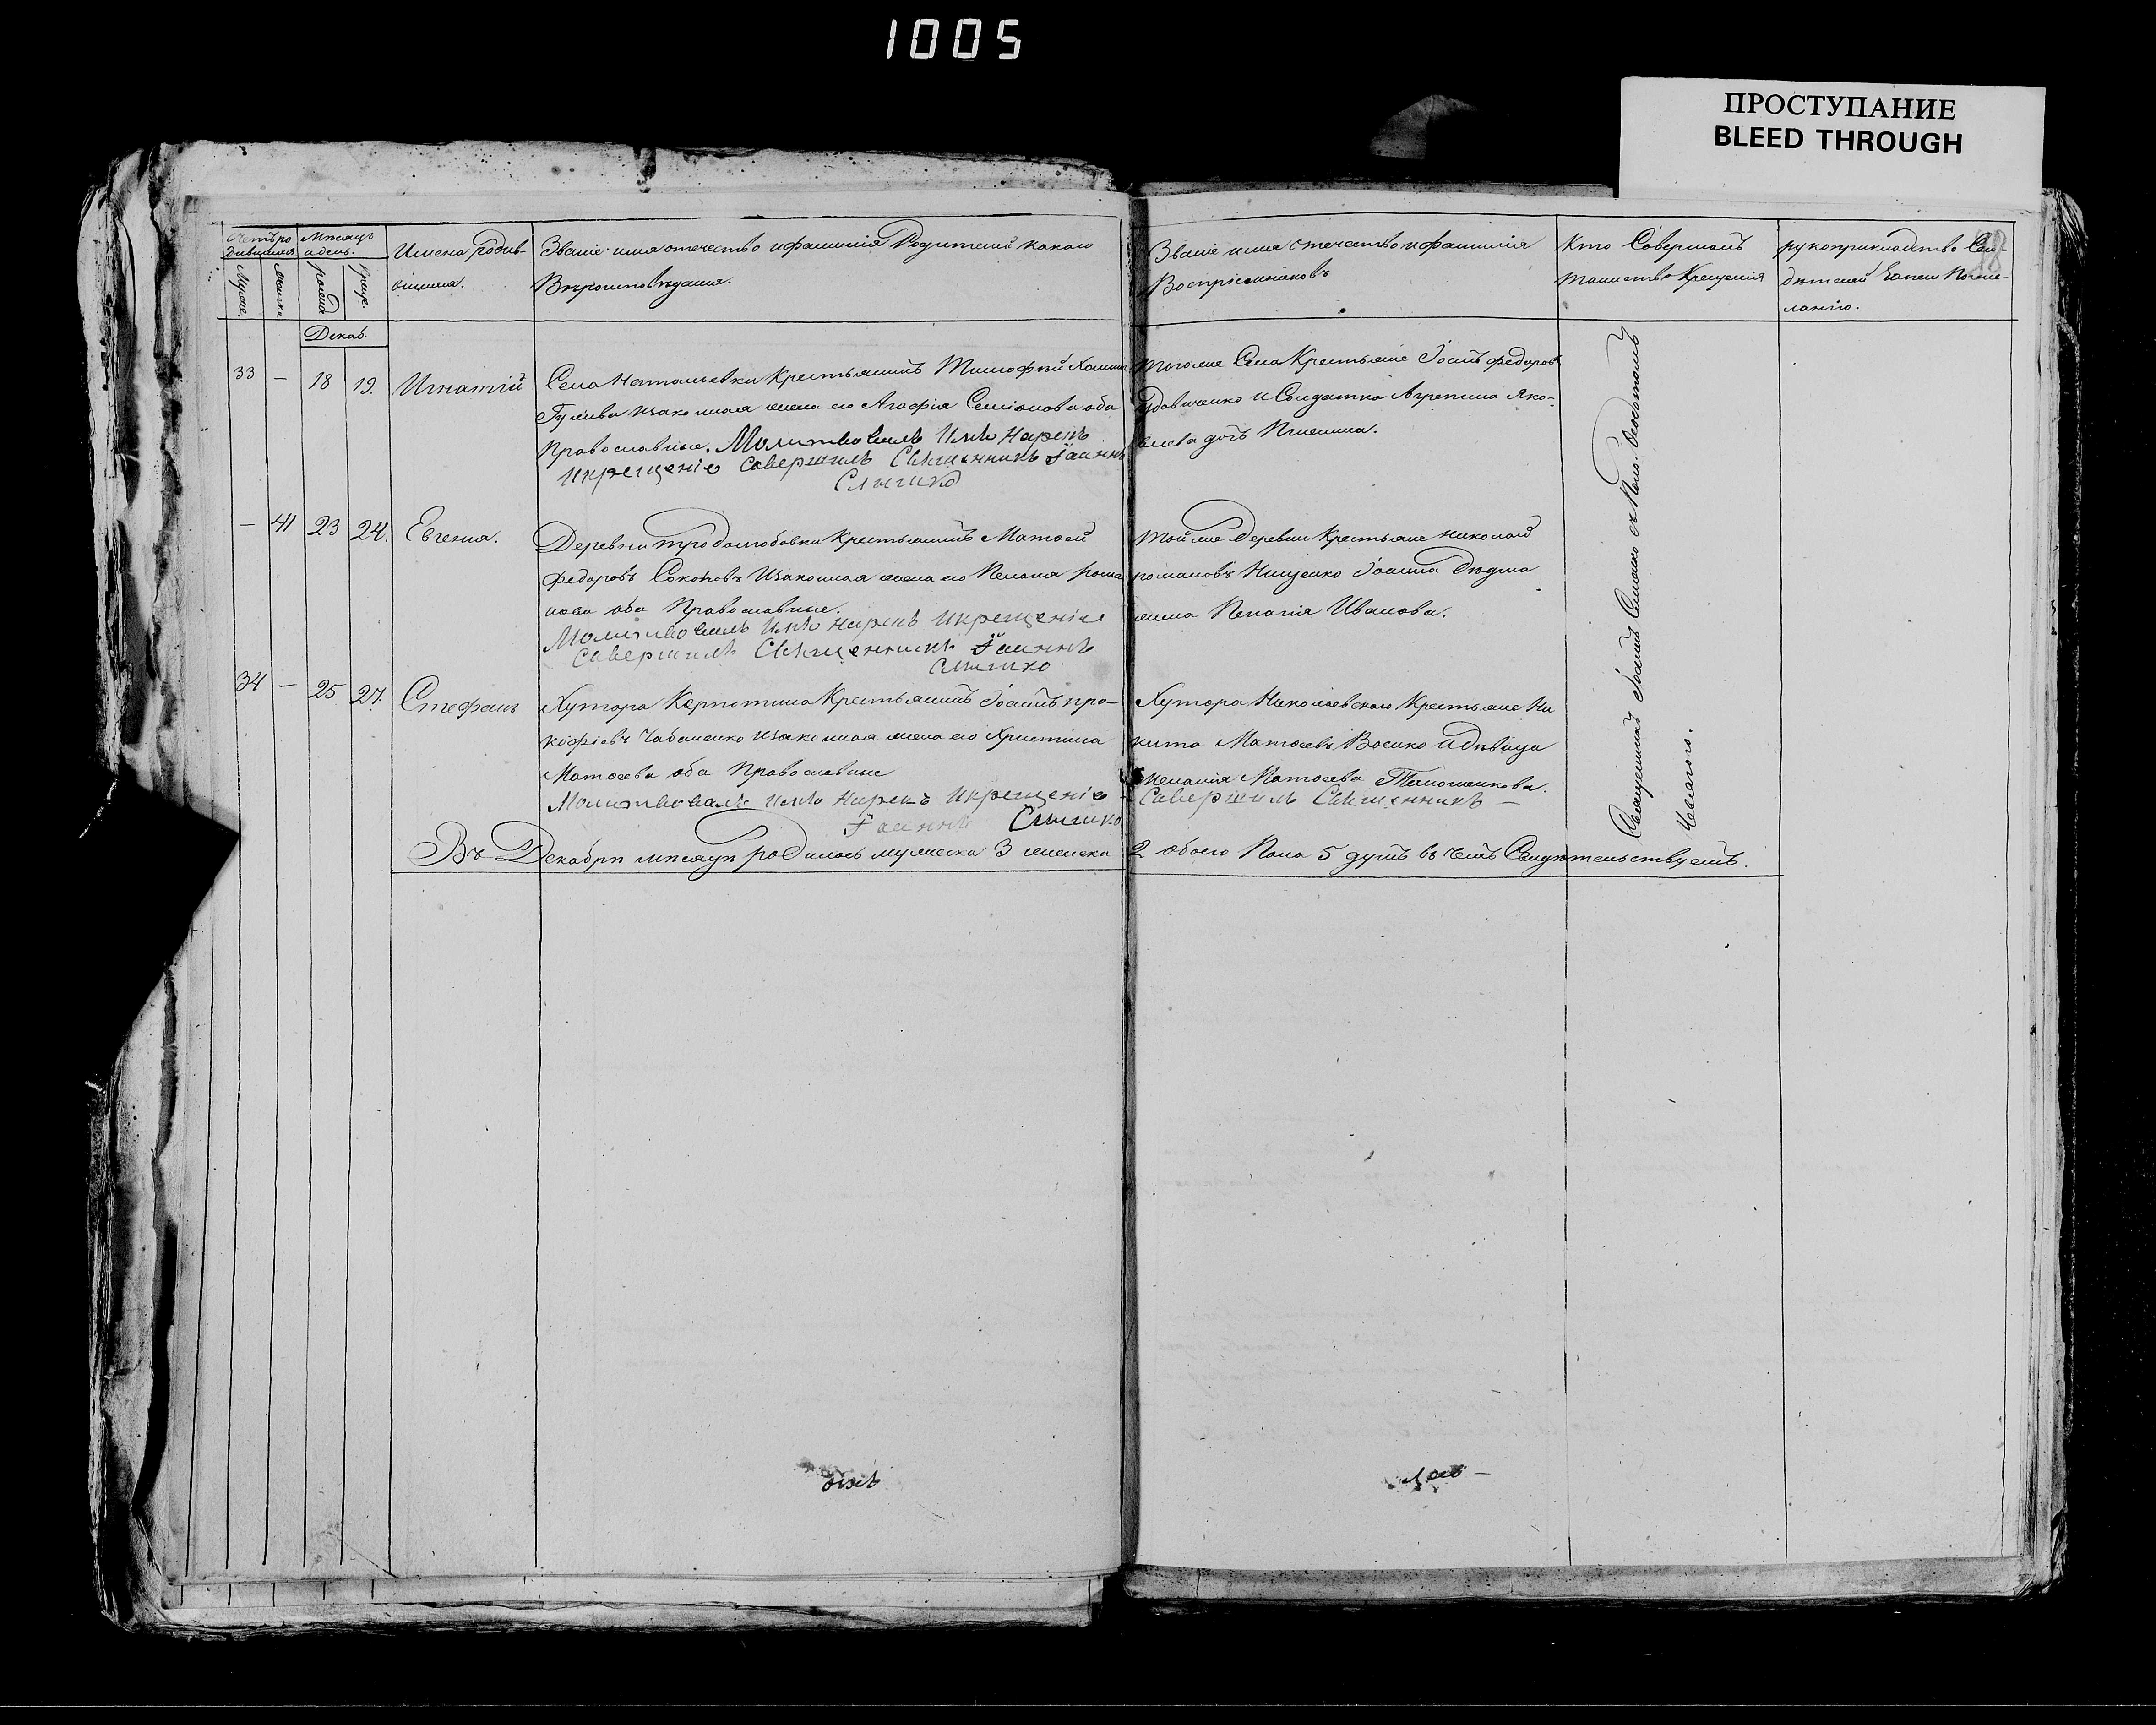 1005
ПРОСТУПАНИЕ
BLEED THROUGH
Счетъ родившихся
Мѣсяцъ и день.
Имена родившихся.
Званіе имя отечество и фамилія Родителей какого
Вѣроисповѣданія.
Званіе имя отечество и фамилія
Воспріемниковъ
Кто Совершалъ
таинство Крещенія
рукоприкладство Свидѣтелей записи по желанію.
Декаб.
33 — 18 19. Игнатій
Села Натальевки Крестьянинъ Тимофѣй
изаконная жена его Агафія Семіонова оба
Православные. Молитвовалъ Имя Нарекъ
икрещеніе Совершилъ Священникъ Іаннъ
Слынко
тогоже Села Крестьяне Іоанъ федоровъ
Удовиченко и Солдатка Агрепина Яко-
влева дочь
— 41 23 24. Евгенія.
Деревни Крестьянинъ Матвей
федоровъ Изаконная жена его Пелагія рома
нова оба Православные.
Молитвовалъ Имя нарекъ икрещеніе
Совершилъ Священникъ Іаннъ
Слынко
той же деревни Крестьяне николай
романовъ Нищенко Іоанна
жена Пелагія Иванова.
34 — 25 27. Стефанъ
Хутора Крестьянинъ Іоанъ про-
кофіевъ Чабаненко изаконная жена его Христина
Матвеева оба Православные
Молитвовалъ имя Нарекъ икрещеніе
Іаннъ Слынко
Хутора Николаевскаго Крестьяне Ни
кита Матвеевъ и дѣвица
Пелагія Матвеева
Совершилъ Священникъ —
Священникъ Іоаннъ Слынко
Въ Декабрѣ мѣсяцѣ родилось мужеска 3 женска 2 обоего Пола 5 душъ въ чемъ Свидѣтельствуемъ.